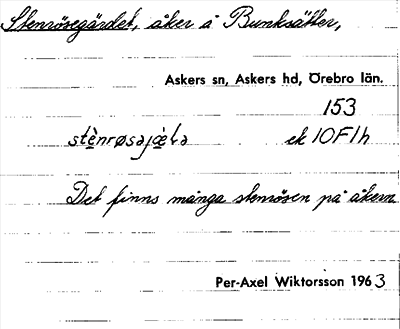 Stenrösegärdet, åker å Bunksätter,
Askers sn, Askers hd, Örebro län.
153
stènrøsəjæ̀ɽə ek 10F1h
Det finns många stenrösen på åkern.
Per-Axel Wiktorsson 1963